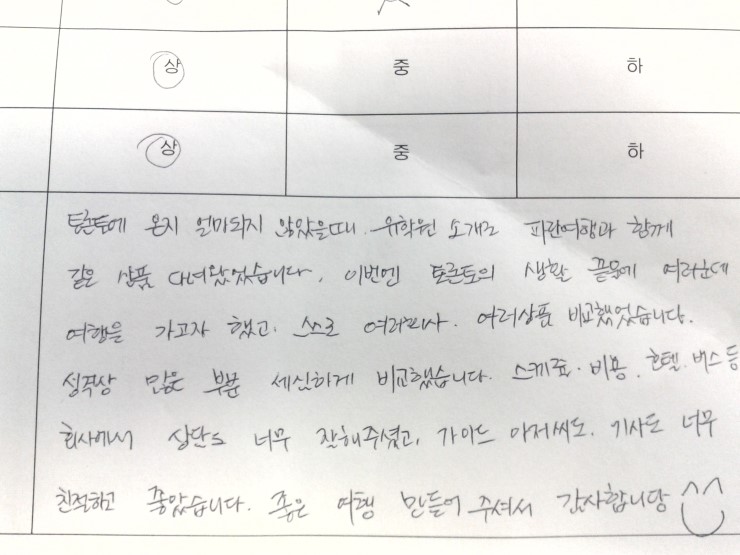 상 중 하
상 중 하
토론토에 온지 얼마되지 않았을때. 유학원 소개로 파란여행과 함께
같은 상품 다녀왔었습니다. 이번엔 토론토의 생활 끝에 여러군데
여행을 가고자 했고. 스스로 여러회사. 여러상품 비교했었습니다.
성격상 많은 부분 세심하게 비교했습니다. 스케쥴. 비용. 호텔. 버스 등
회사에서 상담도 너무 잘해주셨고, 가이드 아저씨도. 기사도 너무
친절하고 좋았습니다. 좋은 여행 만들어 주셔서 감사합니당